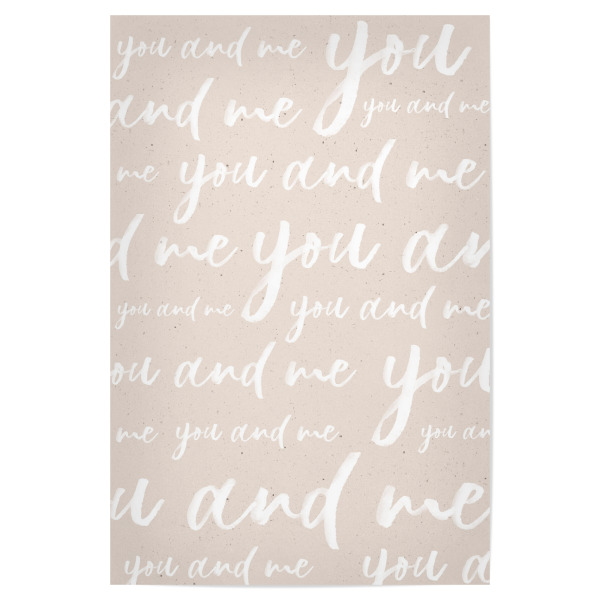 you and me you
and me you and me
me you and me
d me you an
you and me you and me
ou and me you
me you and me you an
u and me
you and me you a